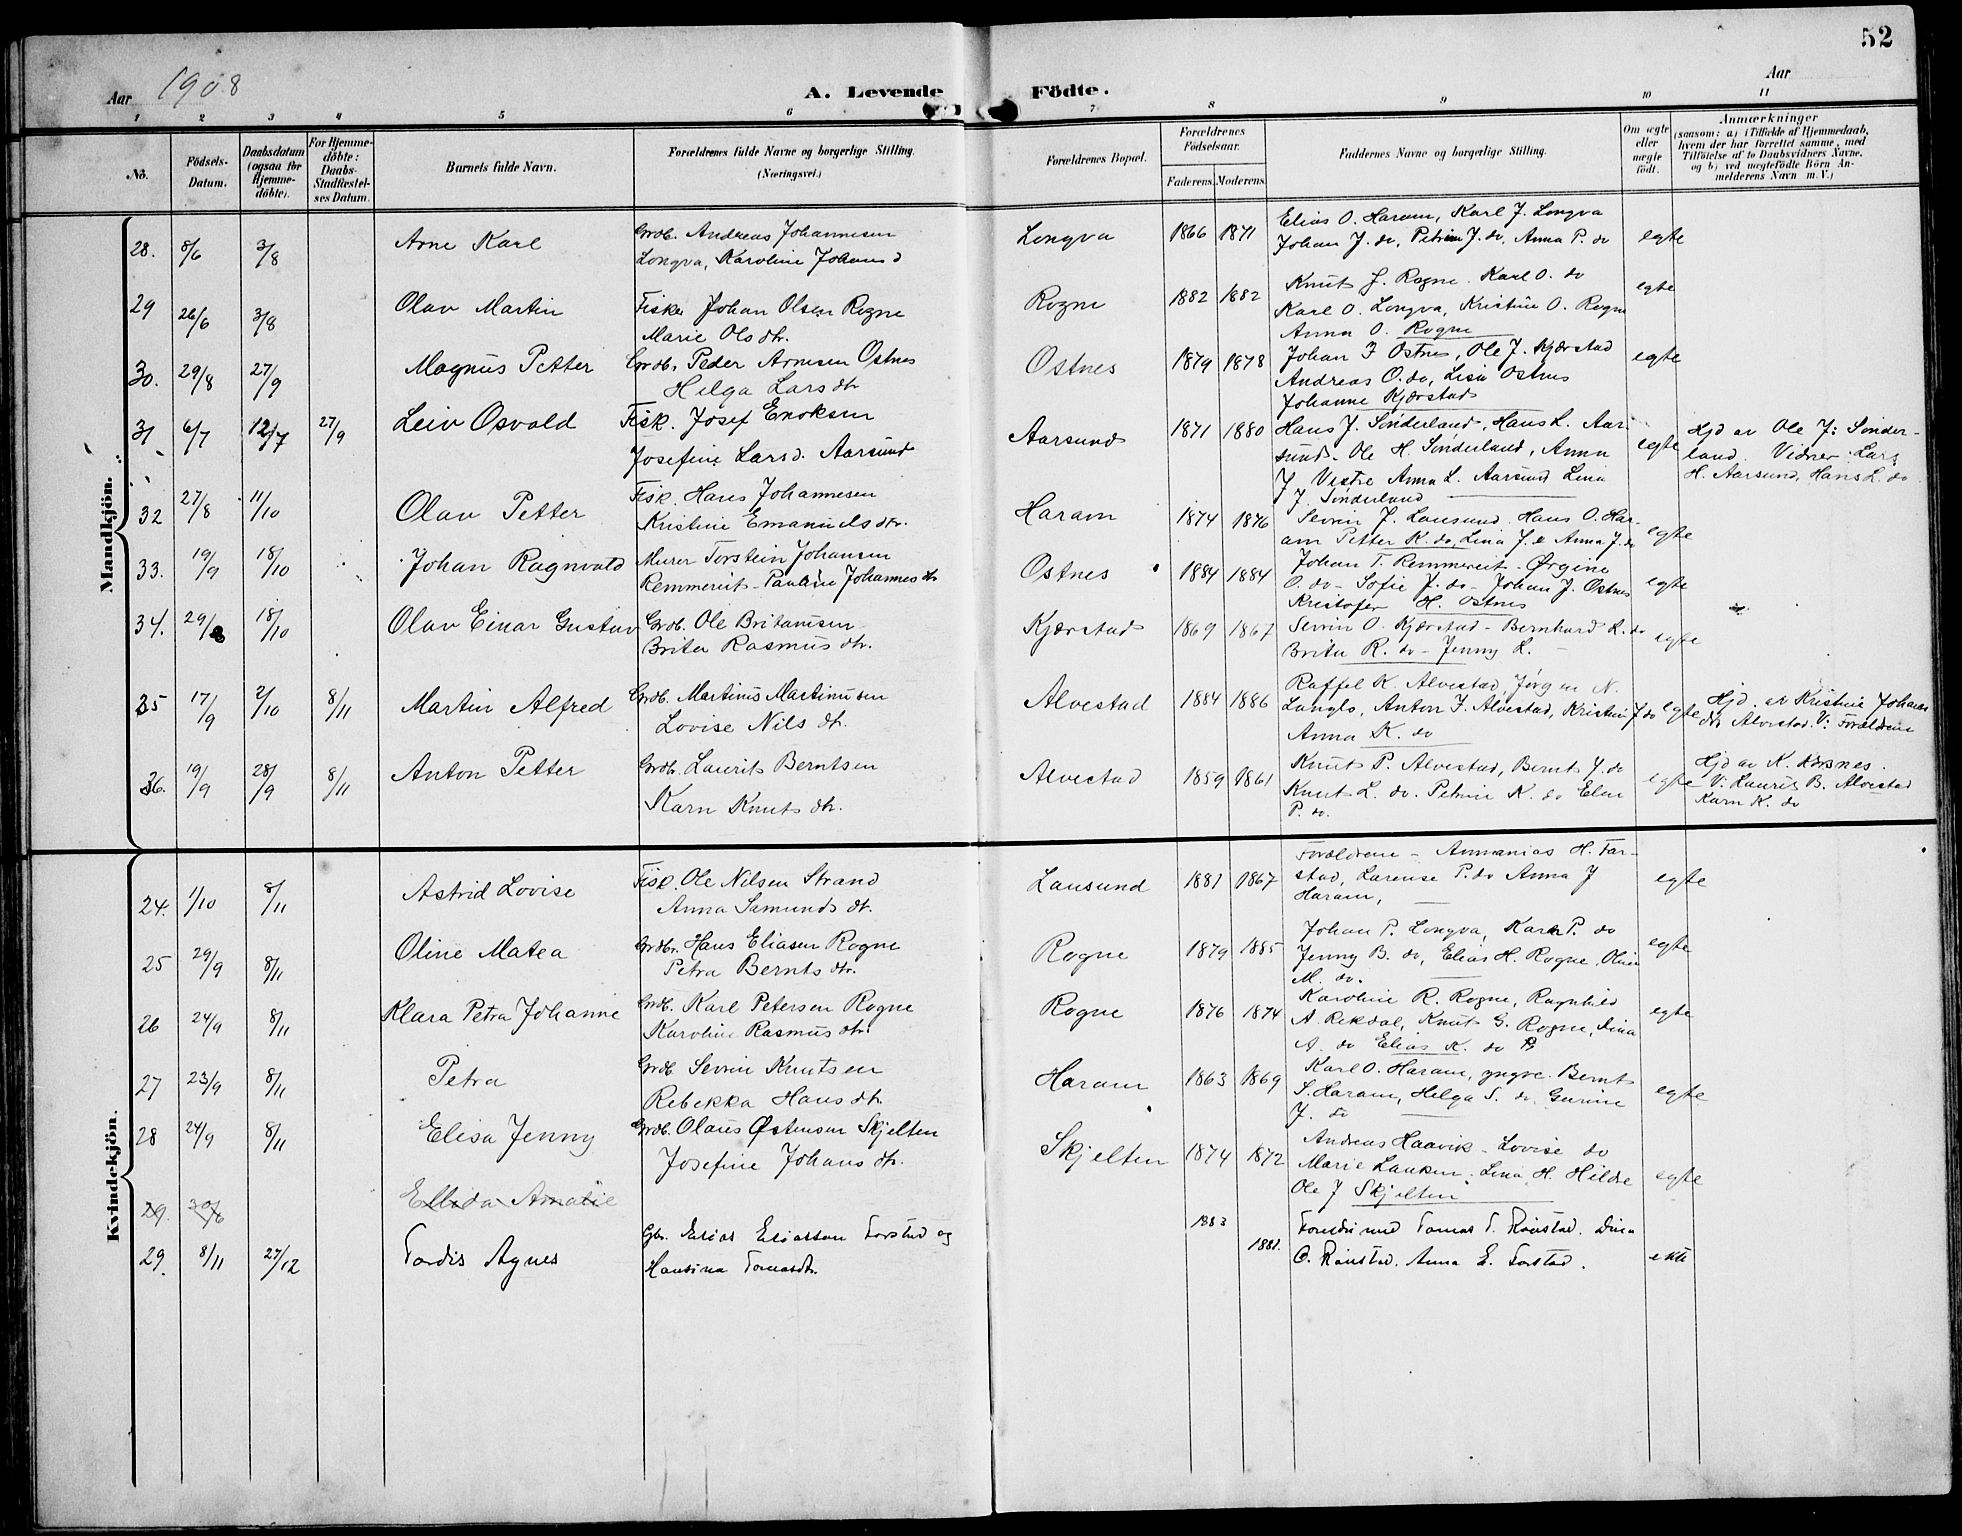 52
Aar 1908
A. Levende Födte.
Aar
1 2 3 4 5 6 7 8 9 10 11
No.
Födsels-Datum.
Daabsdatum (ogsaa for Hjemme-döbte).
For Hjemme-döbte: Daabs-Stadfæstel-ses Datum.
Barnets fulde Navn.
Forældrenes fulde Navne og borgerlige Stilling.
(Næringsvei.)
Forældrenes Bopæl.
Forældrenes Födselsaar.
Faderens. Moderens.
Faddernes Navne og borgerlige Stilling.
Om ægte eller uægte födt.
Anmærkninger
(saasom: a) i Tilfælde af Hjemmedaab, hvem der har forrettet samme, med Tilföielse af to Daabsvidners Navne, og b) ved uægtefödte Börn Anmelderens Navn m. V.)
Mandkjön.
28. 8/6 3/8 Arne Karl Grdb. Andreas Johannesen Longva, Karoline Johans d Longva 1866 1871 Elias O. Haram, Karl J. Longva Johan J. do, Petrine J. do, Anna P. do egte
29 26/6 3/8 Olav Martin Fisker Johan Olsen Rogne Marie Olsdtr. Rogne 1882 1882 Knut J. Rogne Karl O. do Karl O. Longva, Kristine O. Rogne Anna O. Rogne egte
30. 29/8 27/9 Magnus Petter Grdb. Peder Arnesen Ostnes Helga Larsdtr Ostnes 1879 1878 Johan I Ostnes, Ole J. Kjærstad Andreas O. do, Lisa Ostnes Johanne Kjærstad egte
31 6/7 12/7 27/9 Leiv Osvald Fisk. Josef Enoksen Josefine Larsd. Aarsund Aarsund 1871 1880 Hans J. Sønderland, Hans L. Aarsund. Ole H. Sønderland, Anna J. Vestre Anna L. Aarsund Lina J. Sønderland egte Hjd av Ole J. Sønderland. Vidner Lars H. Aarsund, Hans L. do
32 27/8 11/10 Olav Petter Fisk. Hans Johannesen Kristine Emanuelsdtr. Haram 1874 1876 Sevrin J. Lausund Hans O. Haram Petter K. do, Lina J. do Anna J. do egte
33. 19/9 18/10 Johan Ragnvald Murer Torstein Johansen Remmereit - Pauline Johannesdtr Ostnes 1884 1884 Johan T. Remmereit - Ørgine O. do - Sofie J. do - Johan J. Ostnes Kristofer H. Ostnes egte
34. 29/8 18/10 Olav Einar Gustav Grdb. Ole Britanusen Brite Rasmusdtr. Kjærstad 1869 1867 Sevrin O. Kjærstad - Bernhard L. do Brite R. do - Jenny L. - egte
35 17/9 2/10 8/11 Martin Alfred Grdb. Martinus Martinusen Lovise Nilsdtr. Alvestad 1884 1886 Raffel K. Alvestad Jørgen N. Langlo, Anton J. Alvestad, Kristin J do Anna K. do egte Hjd. av Kristine Johansdtr Alvestad. V: Forældrene
36. 19/9 28/9 8/11 Anton Petter Grdb. Laurits Berntsen Karn Knutsdtr. Alvestad 1859 1861 Knut P. Alvestad, Bernt J. do Knut L. do. Petrine K. do Elen P. do. egte Hjd av K. V: Laurits B. Alvestad Karn K. do
Kvindekjön.
24. 1/10 8/11 Astrid Lovise Fisk. Ole Nilsen Strand Anna Samundsdt. Lausund 1881 1867 Forældrene - Annanias H. Farstad, Larense P. do Anna J Haram, egte
25 29/9 8/11 Oline Matea Grdbr. Hans Eliasen Rogne Petra Berntsdtr. Rogne 1879 1885 Johan P. Longva, Karn P. do Jenny B. do, Elias H. Rogne, Oline M. do. egte
26 24/9 8/11 Klara Petra Johanne Grdb. Karl Petersen Rogne Karoline Rasmusdtr. Rogne 1876 1874 Karoline R. Rogne, Ragnhild A. Rekdal, Knut G. Rogne, Lina A. do Elias K. do egte
27 23/9 8/11 Petra Grdb Sevrin Knutsen Rebekka Hansdtr. Haram 1863 1869 Karl O. Haram, yngre. Bernt S. Haram, Helga S. do Gurine J. do egte
28 24/9 8/11 Elisa Jenny Grdb. Olaus Østensen Skjelten Josefine Johansdtr. Skjelten 1874 1872 Andreas Haavik - Lovise do Marie Lauken. Lina H. Hildre Ole J Skjelten egte
29. 30/6 Ellida Amalie
29. 8/11 27/12 Tordis Agnes Gbr. Elias Eliassen Farstad og Hansina Tomasdtr. 1883 1881. Foreldrene Tomas T. Rønstad. Dina O. Rønstad. Anna E. Farstad. ekte